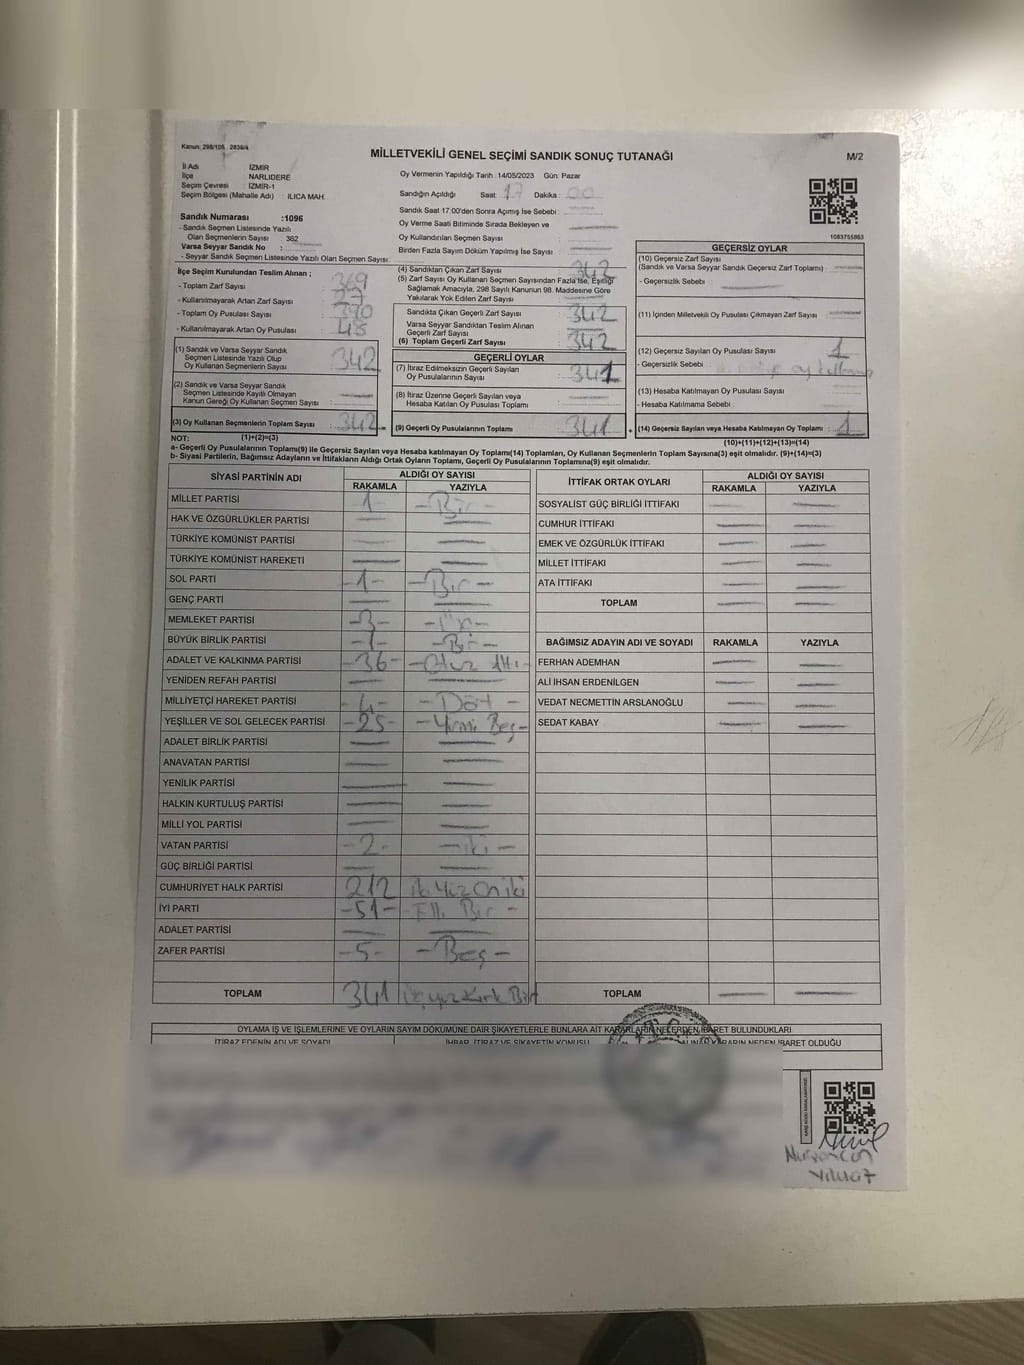 Kanun: 298/105 2839/4
MİLLETVEKİLİ GENEL SEÇİMİ SANDIK SONUÇ TUTANAĞI
M/2
İl Adı İZMİR
İlçe NARLIDERE
Seçim Çevresi : İZMİR-1
Seçim Bölgesi (Mahalle Adı) : ILICA MAH.
Sandık Numarası :1096
- Sandık Seçmen Listesinde Yazılı
Olan Seçmenlerin Sayısı : 362
Varsa Seyyar Sandık No :
- Seyyar Sandık Seçmen Listesinde Yazılı Olan Seçmen Sayısı:
Oy Vermenin Yapıldığı Tarih :14/05/2023 Gün: Pazar
Sandığın Açıldığı Saat: 17 Dakika : 00
Sandık Saat 17.00'den Sonra Açımış İse Sebebi :
Oy Verme Saati Bitiminde Sırada Bekleyen ve
Oy Kullandırılan Seçmen Sayısı :
Birden Fazla Sayım Döküm Yapılmış İse Sayısı :
1083755863
İlçe Seçim Kurulundan Teslim Alınan ;
- Toplam Zarf Sayısı : 369
- Kullanılmayarak Artan Zarf Sayısı : 27
- Toplam Oy Pusulası Sayısı : 390
- Kullanılmayarak Artan Oy Pusulası : 48
(1) Sandık ve Varsa Seyyar Sandık
Seçmen Listesinde Yazılı Olup
Oy Kullanan Seçmenlerin Sayısı : 342
(2) Sandık ve Varsa Seyyar Sandık
Seçmen Listesinde Kayıtlı Olmayan
Kanun Gereği Oy Kullanan Seçmen Sayısı :
(3) Oy Kullanan Seçmenlerin Toplam Sayısı : 342
(4) Sandıktan Çıkan Zarf Sayısı : 342
(5) Zarf Sayısı Oy Kullanan Seçmen Sayısından Fazla İse, Eşitliği
Sağlamak Amacıyla; 298 Sayılı Kanunun 98. Maddesine Göre
Yakılarak Yok Edilen Zarf Sayısı :
Sandıkta Çıkan Geçerli Zarf Sayısı : 342
Varsa Seyyar Sandıktan Teslim Alınan
Geçerli Zarf Sayısı :
(6) Toplam Geçerli Zarf Sayısı : 342
GEÇERLİ OYLAR
(7) İtiraz Edilmeksizin Geçerli Sayılan
Oy Pusulalarının Sayısı : 341
(8) İtiraz Üzerine Geçerli Sayılan veya
Hesaba Katılan Oy Pusulası Toplamı :
(9) Geçerli Oy Pusulalarının Toplamı : 341
GEÇERSİZ OYLAR
(10) Geçersiz Zarf Sayısı
(Sandık ve Varsa Seyyar Sandık Geçersiz Zarf Toplamı) :
- Geçersizlik Sebebi :
(11) İçinden Milletvekili Oy Pusulası Çıkmayan Zarf Sayısı :
(12) Geçersiz Sayılan Oy Pusulası Sayısı : 1
- Geçersizlik Sebebi : oy kullanma
(13) Hesaba Katılmayan Oy Pusulası Sayısı :
- Hesaba Katılmama Sebebi :
(14) Geçersiz Sayılan veya Hesaba Katılmayan Oy Toplamı : 1
NOT: (1)+(2)=(3)
(10)+(11)+(12)+(13)=(14)
a- Geçerli Oy Pusulalarının Toplamı(9) ile Geçersiz Sayılan veya Hesaba katılmayan Oy Toplamı(14) Toplamları, Oy Kullanan Seçmenlerin Toplam Sayısına(3) eşit olmalıdır. (9)+(14)=(3)
b- Siyasi Partilerin, Bağımsız Adayların ve İttifakların Aldığı Ortak Oyların Toplamı, Geçerli Oy Pusulalarının Toplamına(9) eşit olmalıdır.
SİYASİ PARTİNİN ADI ALDIĞI OY SAYISI
RAKAMLA YAZIYLA
MİLLET PARTİSİ 1 - Bir -
HAK VE ÖZGÜRLÜKLER PARTİSİ
TÜRKİYE KOMÜNİST PARTİSİ
TÜRKİYE KOMÜNİST HAREKETİ
SOL PARTİ -1- - Bir -
GENÇ PARTİ
MEMLEKET PARTİSİ -3- - Üç -
BÜYÜK BİRLİK PARTİSİ -1- - Bir -
ADALET VE KALKINMA PARTİSİ -36- - Otuz Altı -
YENİDEN REFAH PARTİSİ
MİLLİYETÇİ HAREKET PARTİSİ -4- - Dört -
YEŞİLLER VE SOL GELECEK PARTİSİ -25- - Yirmi Beş -
ADALET BİRLİK PARTİSİ
ANAVATAN PARTİSİ
YENİLİK PARTİSİ
HALKIN KURTULUŞ PARTİSİ
MİLLİ YOL PARTİSİ
VATAN PARTİSİ -2- - iki -
GÜÇ BİRLİĞİ PARTİSİ
CUMHURİYET HALK PARTİSİ 212 iki Yüz On iki
İYİ PARTİ -51- - Elli Bir -
ADALET PARTİSİ
ZAFER PARTİSİ -5- - Beş -
TOPLAM 341 Üç yüz Kırk Bir
İTTİFAK ORTAK OYLARI ALDIĞI OY SAYISI
RAKAMLA YAZIYLA
SOSYALİST GÜÇ BİRLİĞİ İTTİFAKI
CUMHUR İTTİFAKI
EMEK VE ÖZGÜRLÜK İTTİFAKI
MİLLET İTTİFAKI
ATA İTTİFAKI
TOPLAM
BAĞIMSIZ ADAYIN ADI VE SOYADI RAKAMLA YAZIYLA
FERHAN ADEMHAN
ALİ İHSAN ERDENİLGEN
VEDAT NECMETTİN ARSLANOĞLU
SEDAT KABAY
TOPLAM
OYLAMA İŞ VE İŞLEMLERİNE VE OYLARIN SAYIM DÖKÜMÜNE DAİR ŞİKAYETLERLE BUNLARA AİT KARARLARIN NELERDEN İBARET BULUNDUKLARI
İTİRAZ EDENİN ADI VE SOYADI İHBAR, İTİRAZ VE ŞİKAYETİN KONUSU ALINAN KARARIN NEDEN İBARET OLDUĞU
Nurşancan
YILMAZ